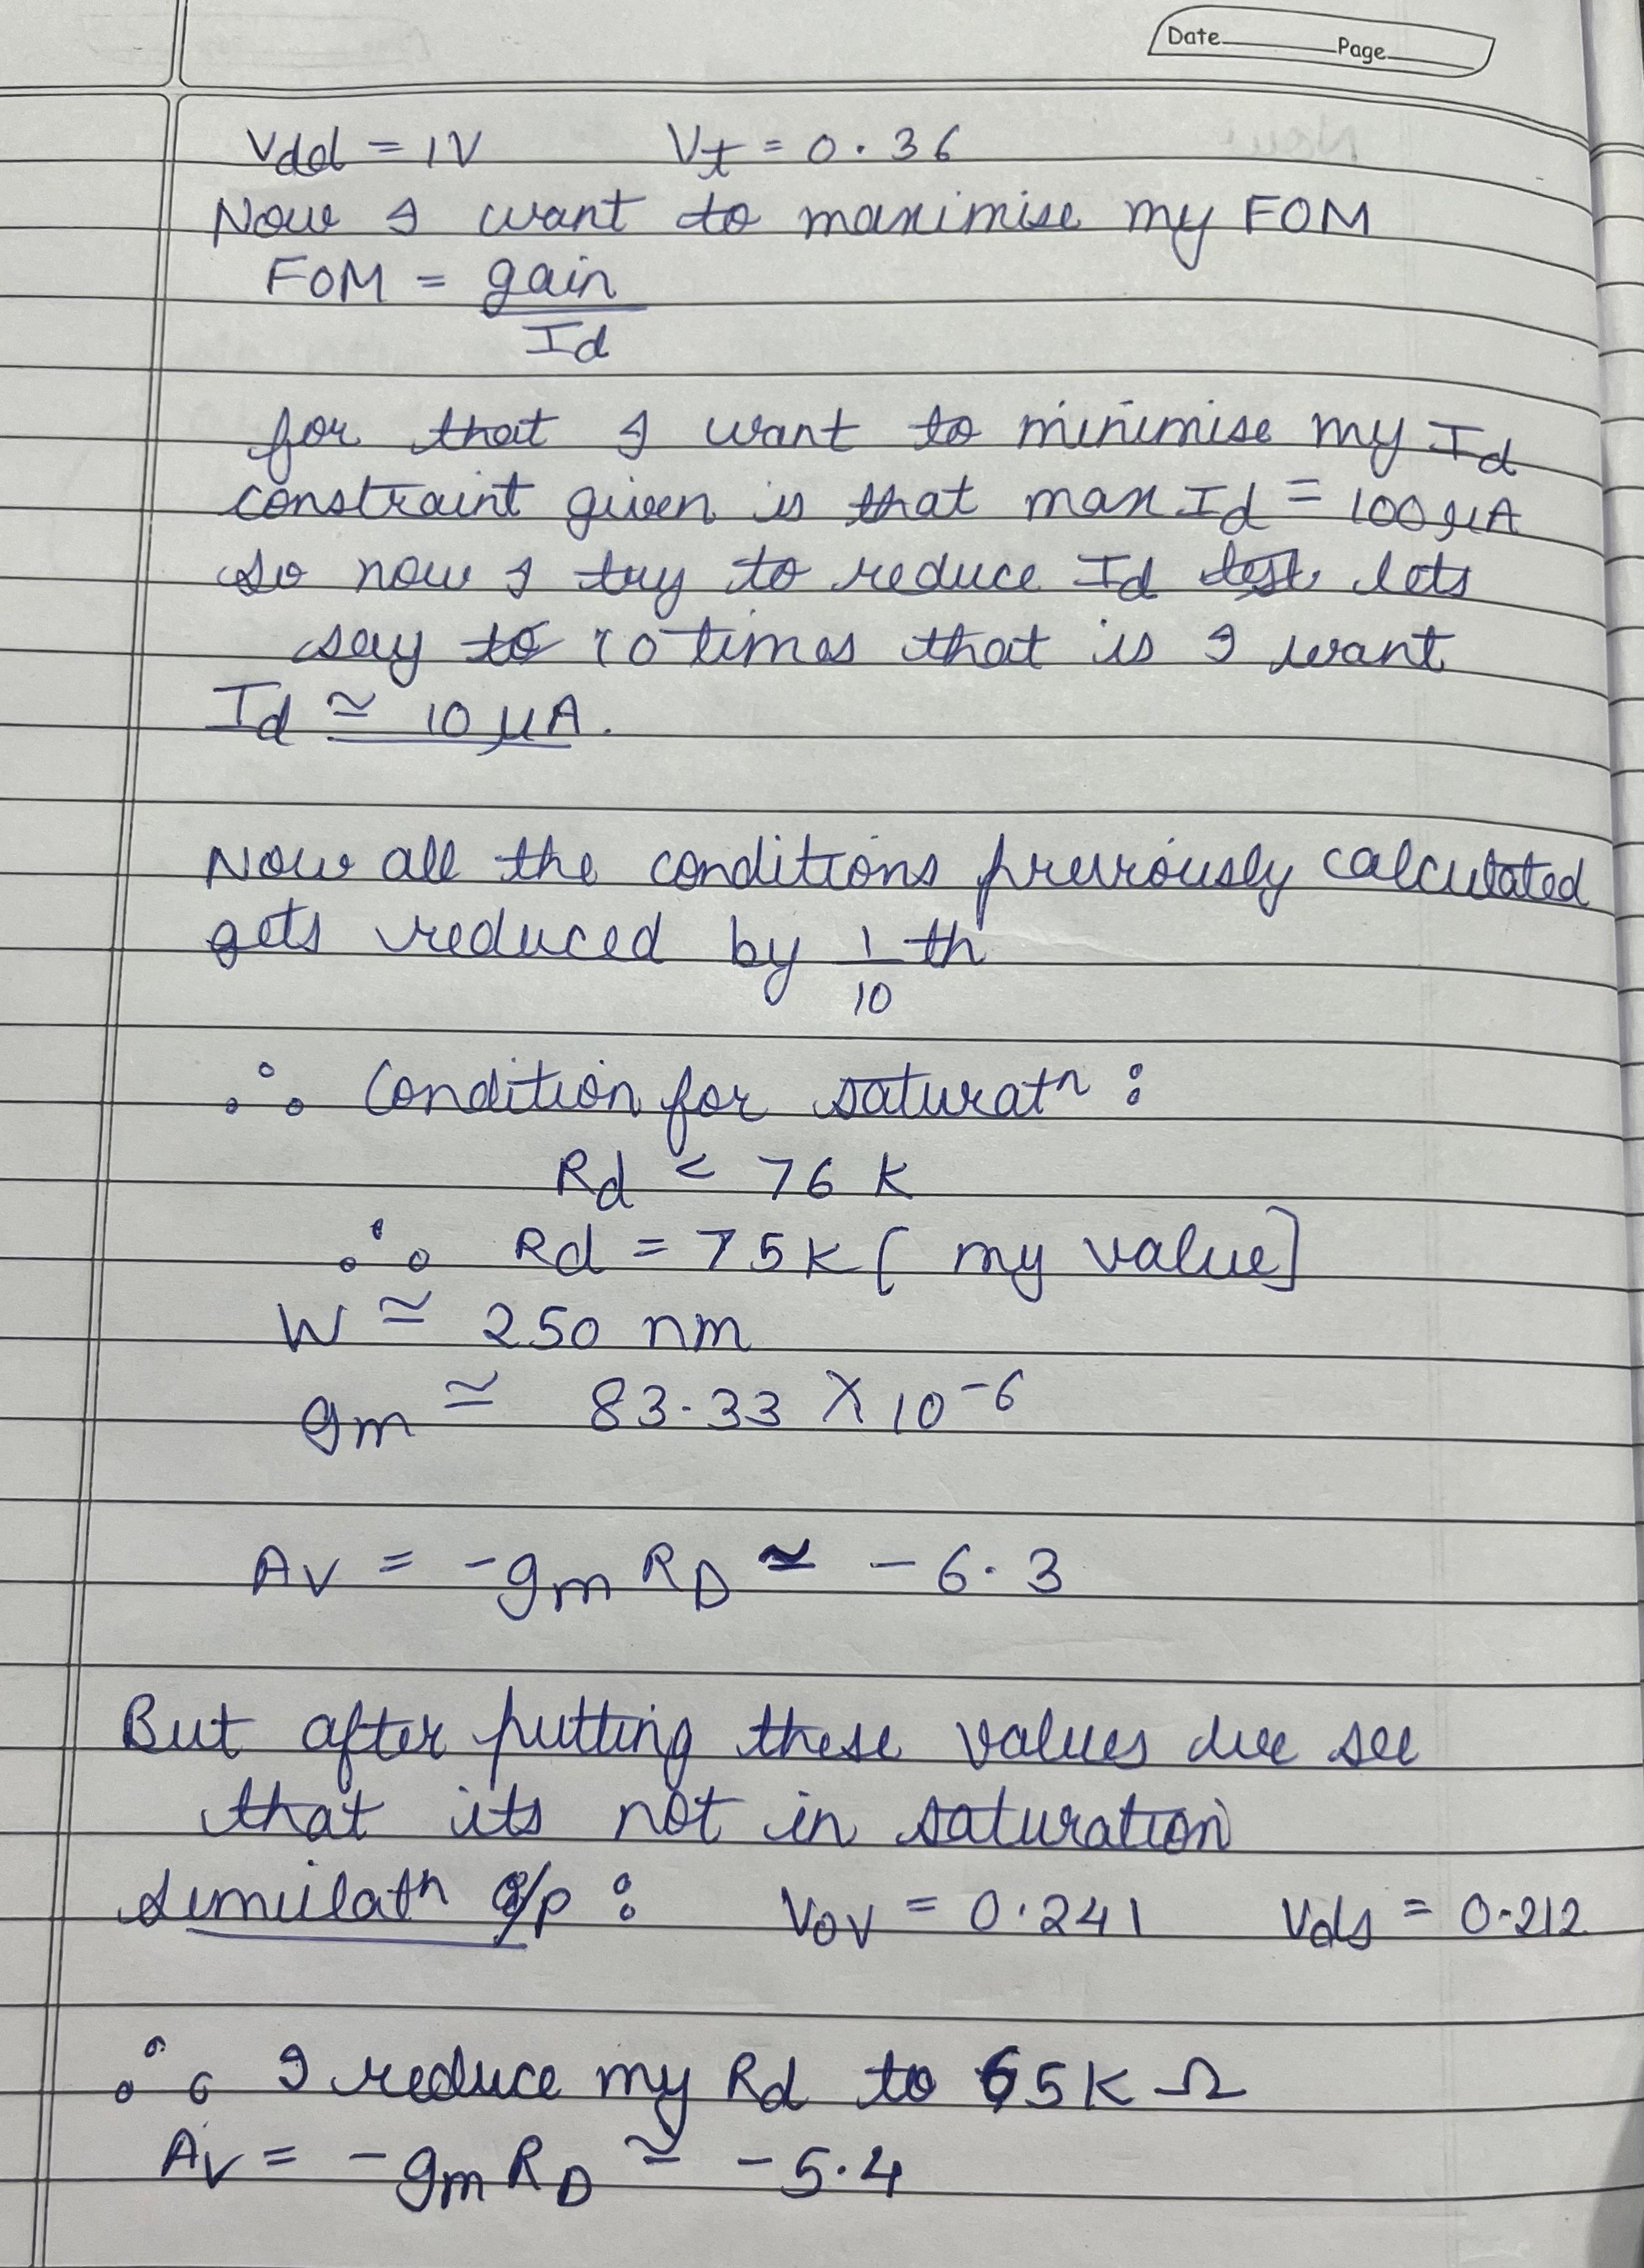 Date Page
Vdd = 1V Vt = 0.36
Now I want to maximise my FOM
FOM = gain
Id
for that I want to minimise my Id
constraint given is that max Id = 100 μA
so now I try to reduce Id lets
say to 10 times that is I want
Id ≃ 10 μA.
Now all the conditions previously calculated
gets reduced by 1/10 th
∴ Condition for saturatn :
Rd < 76 K
∴ Rd = 75K [my value]
W ≃ 250 nm
gm ≃ 83.33 × 10^-6
Av = -gm RD ≃ -6.3
But after putting these values we see
that its not in saturation
simulatn o/p : Vov = 0.241 Vds = 0.212
∴ I reduce my Rd to 65K Ω
Av = -gm RD ≃ -5.4